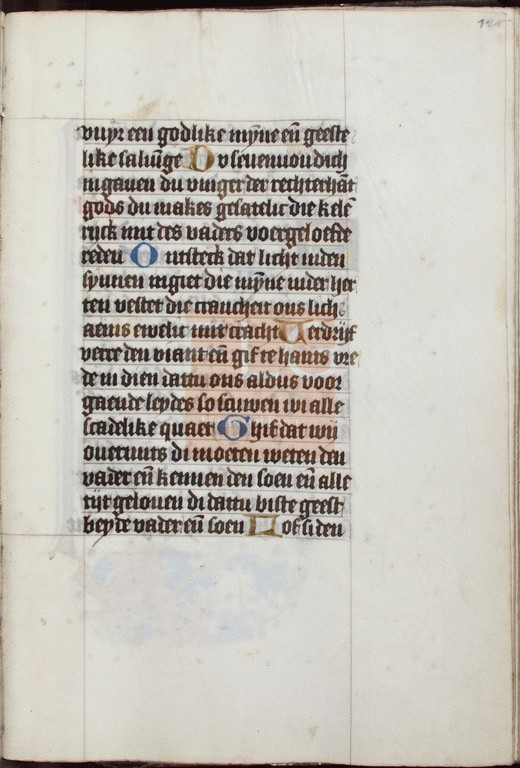 125
vuyr een godlike mȳne eñ geeste
like saluīge Du seuenuoudich
in gauen du vinger der rechterhāt
gods du makes gesatelic die kele
rijck mit des vaders voergeloefde
reden Ontsteck dat licht inden
synnen ingiet die mȳne inder her
ten vestet die crancheit ons lich
aems ewelic mit cracht Verdrijf
verre den viant eñ gif te hants vre
de in dien dattu ons aldus voor
gaende leydes so scuwen wi alle
scadelike quaet Ghif dat wij
ouermits di moeten weten den
vader eñ kennen den soen eñ alle
tijt gelouen di dattu biste geest
beyde vader eñ soen Lof si den